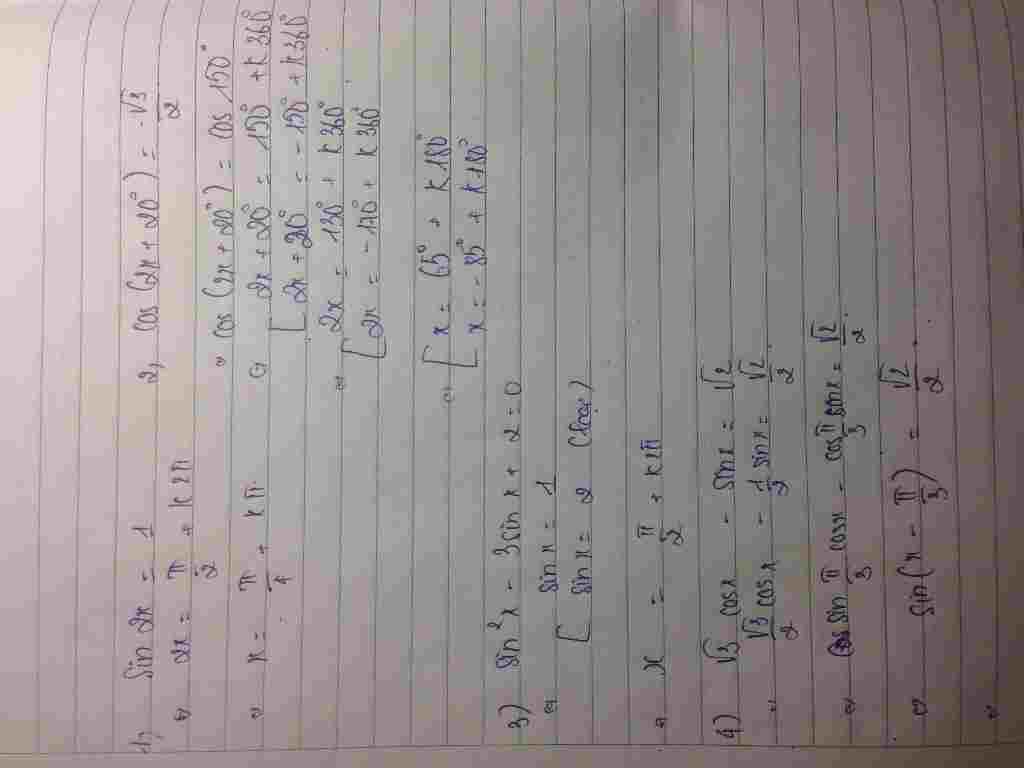 1, sin 2x = 1
⇔ 2x = π/2 + k2π
⇔ x = π/4 + kπ
2, cos (2x + 20°) = -√3/2
⇔ cos (2x + 20°) = cos 150°
⇔ [ 2x + 20° = 150° + k360°
2x + 20° = -150° + k360°
⇔ [ 2x = 130° + k360°
2x = -170° + k360°
⇔ [ x = 65° + k180°
x = -85° + k180°
3) sin²x - 3sin x + 2 = 0
⇔ [ sin x = 1
sin x = 2 (loại)
⇔ x = π/2 + k2π
4) √3 cosx - sinx = √2
⇔ √3/2 cosx - 1/2 sinx = √2/2
⇔ sin π/3 cosx - cos π/3 sinx = √2/2
⇔ sin(x - π/3) = √2/2
⇔